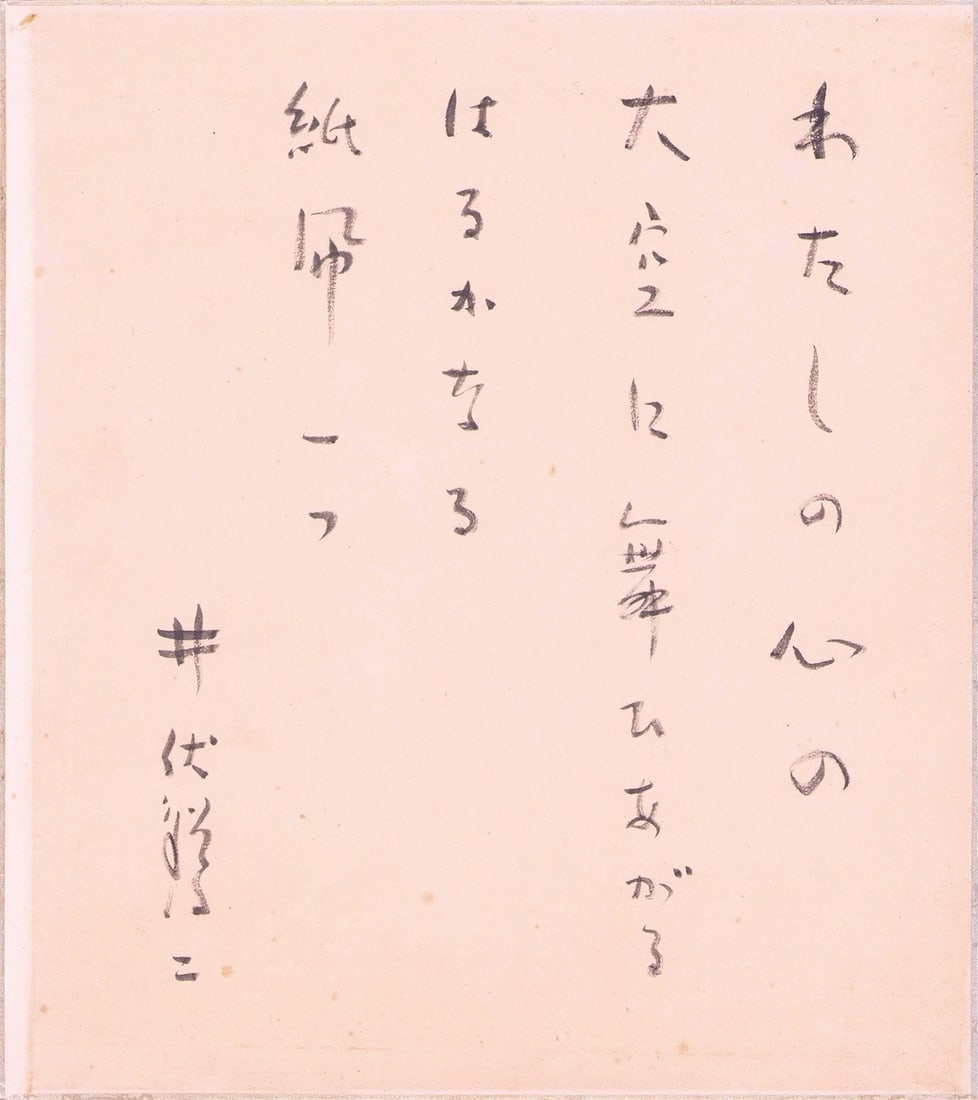 わたしの心の
大空に舞ひあがる
はるかなる
紙凧一つ
井伏鱒二